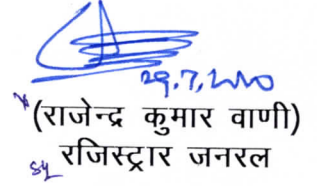 29.7.2020
(राजेन्द्र कुमार वाणी)
रजिस्ट्रार जनरल